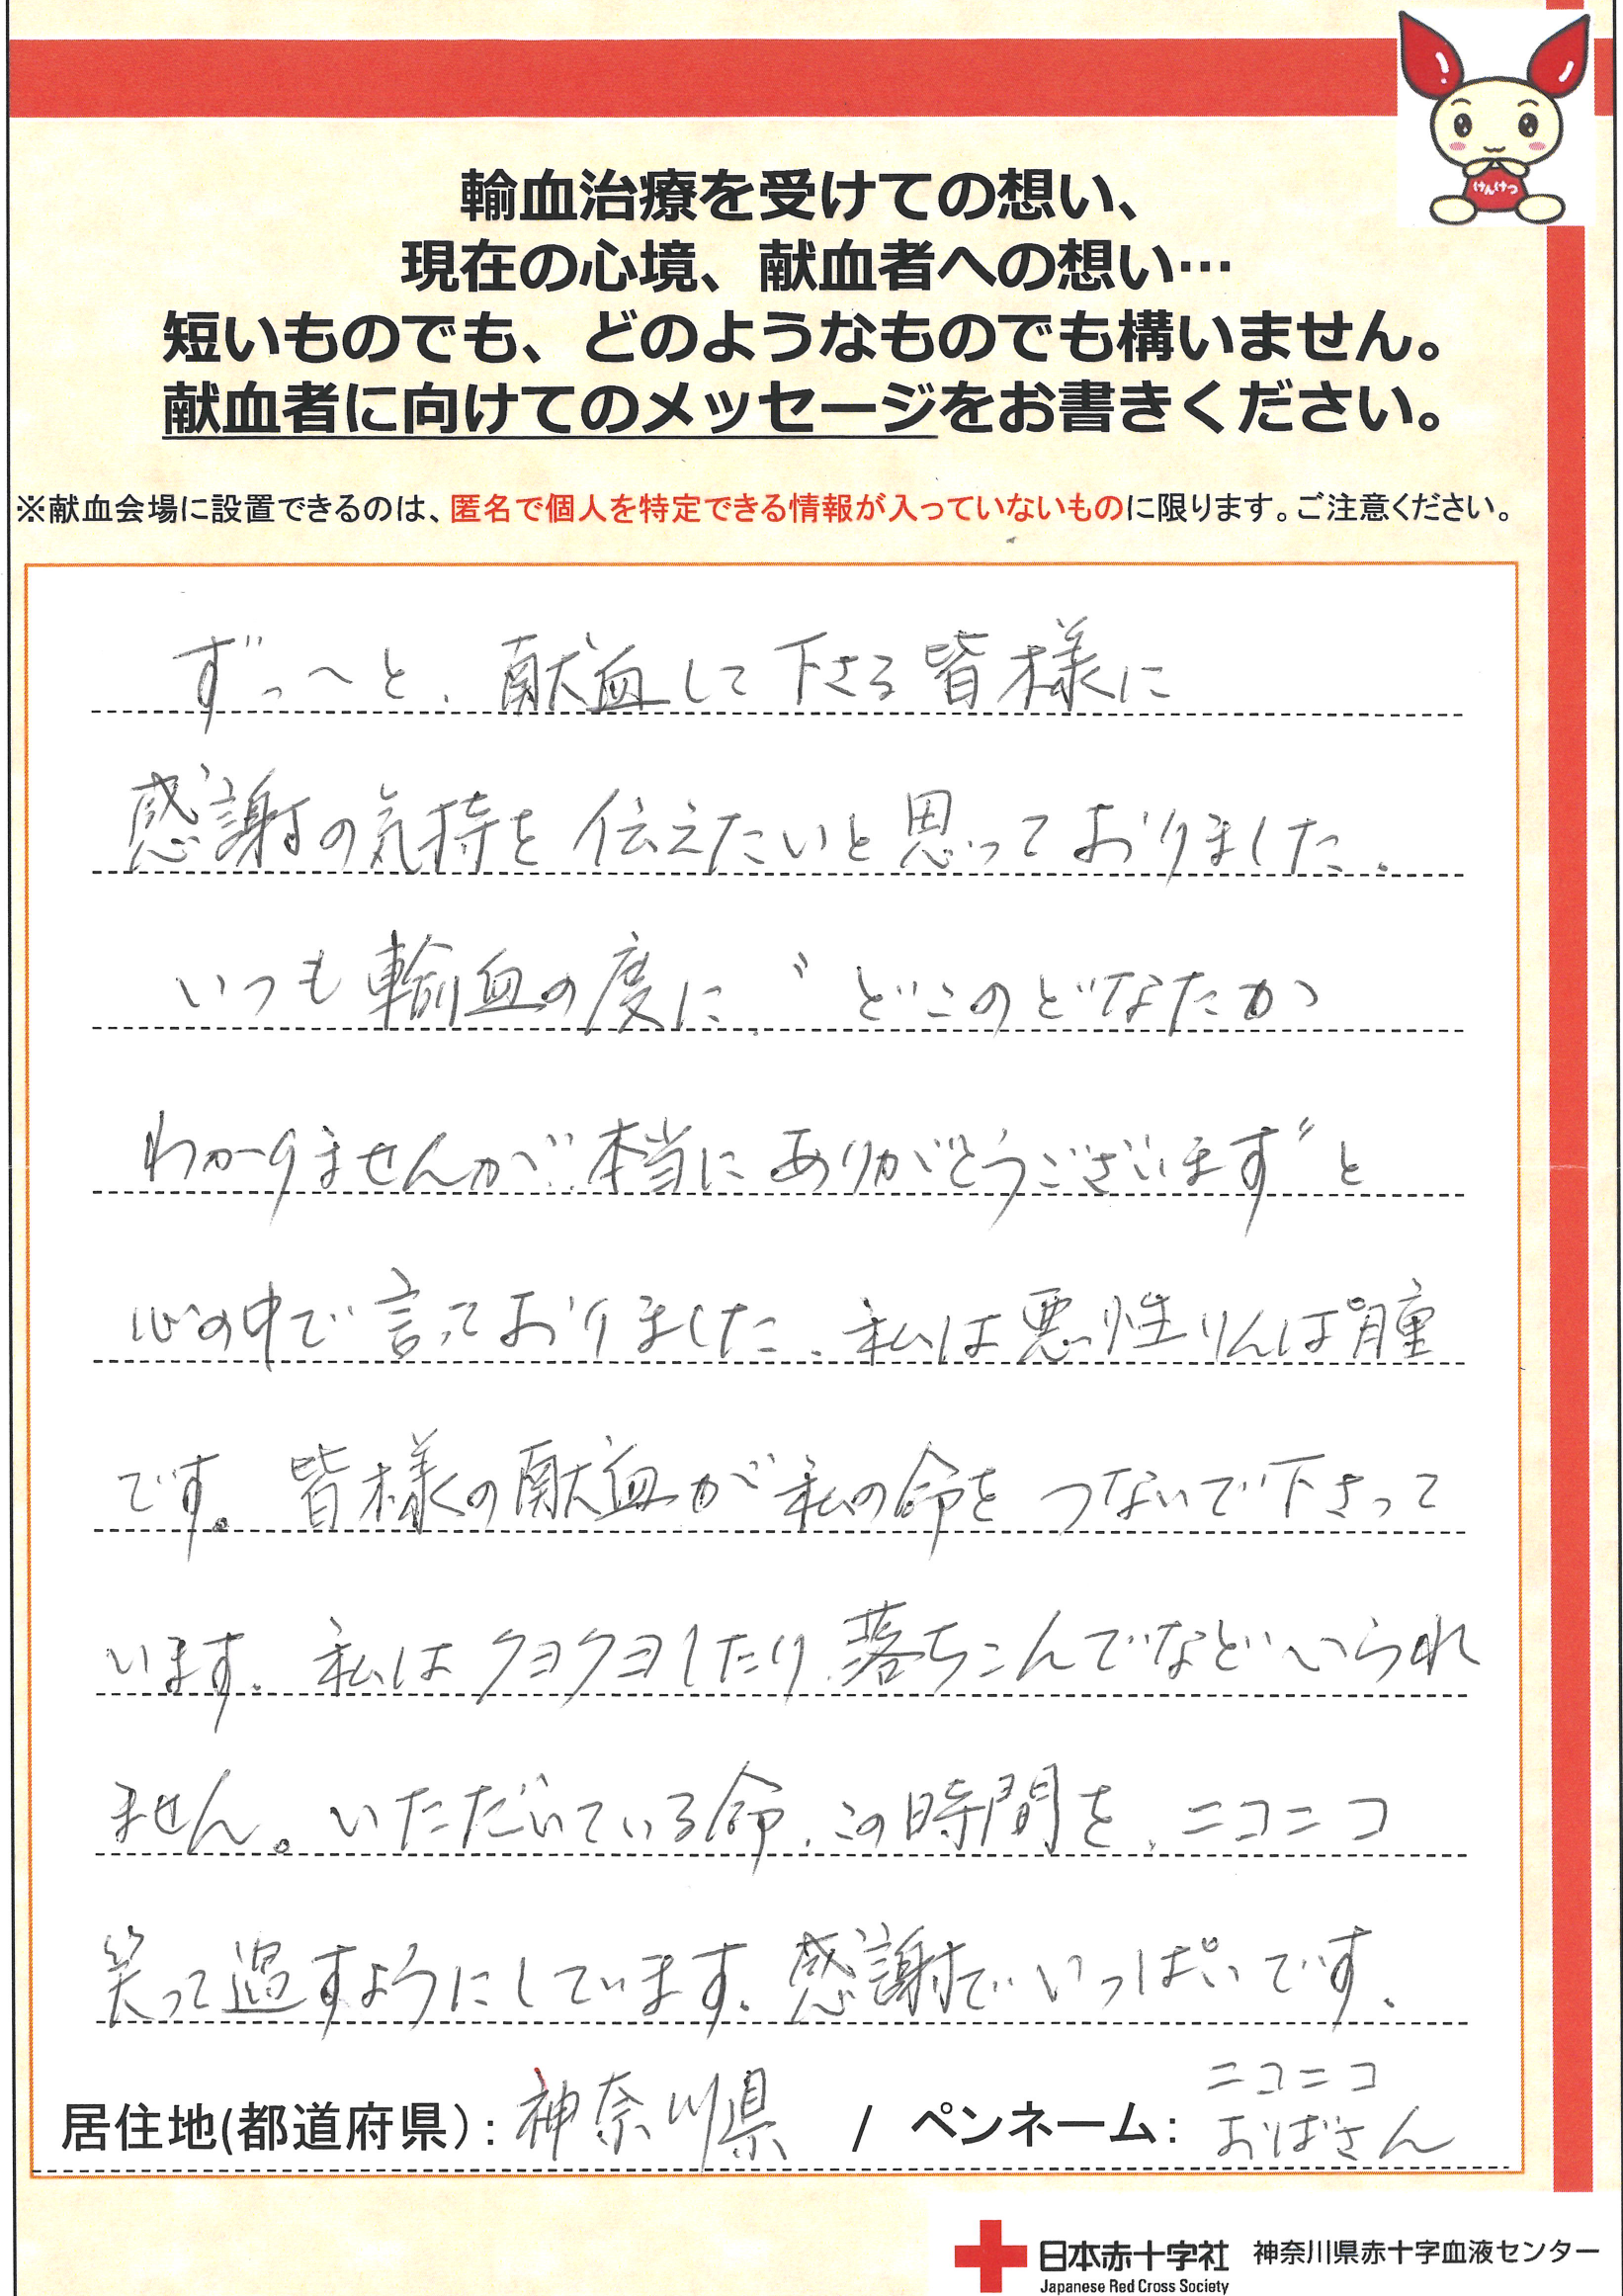 けんけつ
輸血治療を受けての想い、
現在の心境、献血者への想い…
短いものでも、どのようなものでも構いません。
献血者に向けてのメッセージをお書きください。
※献血会場に設置できるのは、匿名で個人を特定できる情報が入っていないものに限ります。ご注意ください。
ずっ〜と、献血して下さる皆様に
感謝の気持を伝えたいと思っておりました。
いつも輸血の度に、〝どこのどなたか
わかりませんが、本当にありがとうございます〟と
心の中で言っておりました。私は悪性りんぱ腫
です。皆様の献血が私の命をつないで下さって
います。私はクヨクヨしたり、落ちこんでなどいられ
ません。いただいている命、この時間を、ニコニコ
笑って過すようにしています。感謝でいっぱいです。
居住地(都道府県)：神奈川県 / ペンネーム：ニコニコ
おばさん
日本赤十字社 神奈川県赤十字血液センター
Japanese Red Cross Society